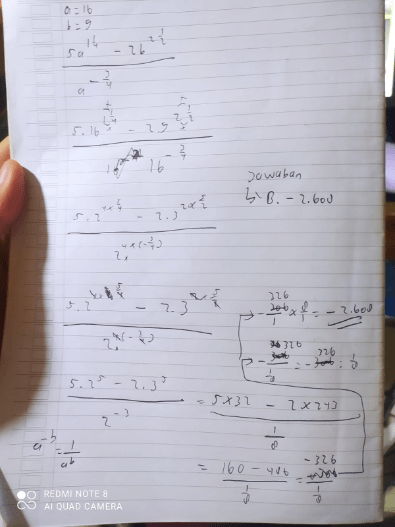 a = 16
b = 9
5a^1¼ - 2b^2½
a^-¾
5.16^5/4 - 2.9^5/2
16^-¾
Jawaban
↳ B. -2.608
5.2^4×5/4 - 2.3^2×5/2
2^4×(-¾)
5.2 - 2.3
→ -326/1 × 8/1 = -2.608
5.2^5 - 2.3^5
2^-3
= 5×32 - 2×243
1/8
a^-b = 1/a^b
= 160 - 486
1/8
= -326
1/8
REDMI NOTE 8
AI QUAD CAMERA